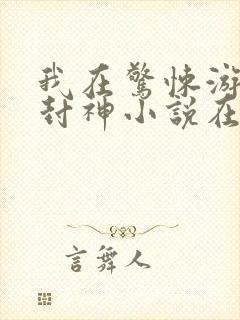 我在驚悚游
封神小說在
言舞人